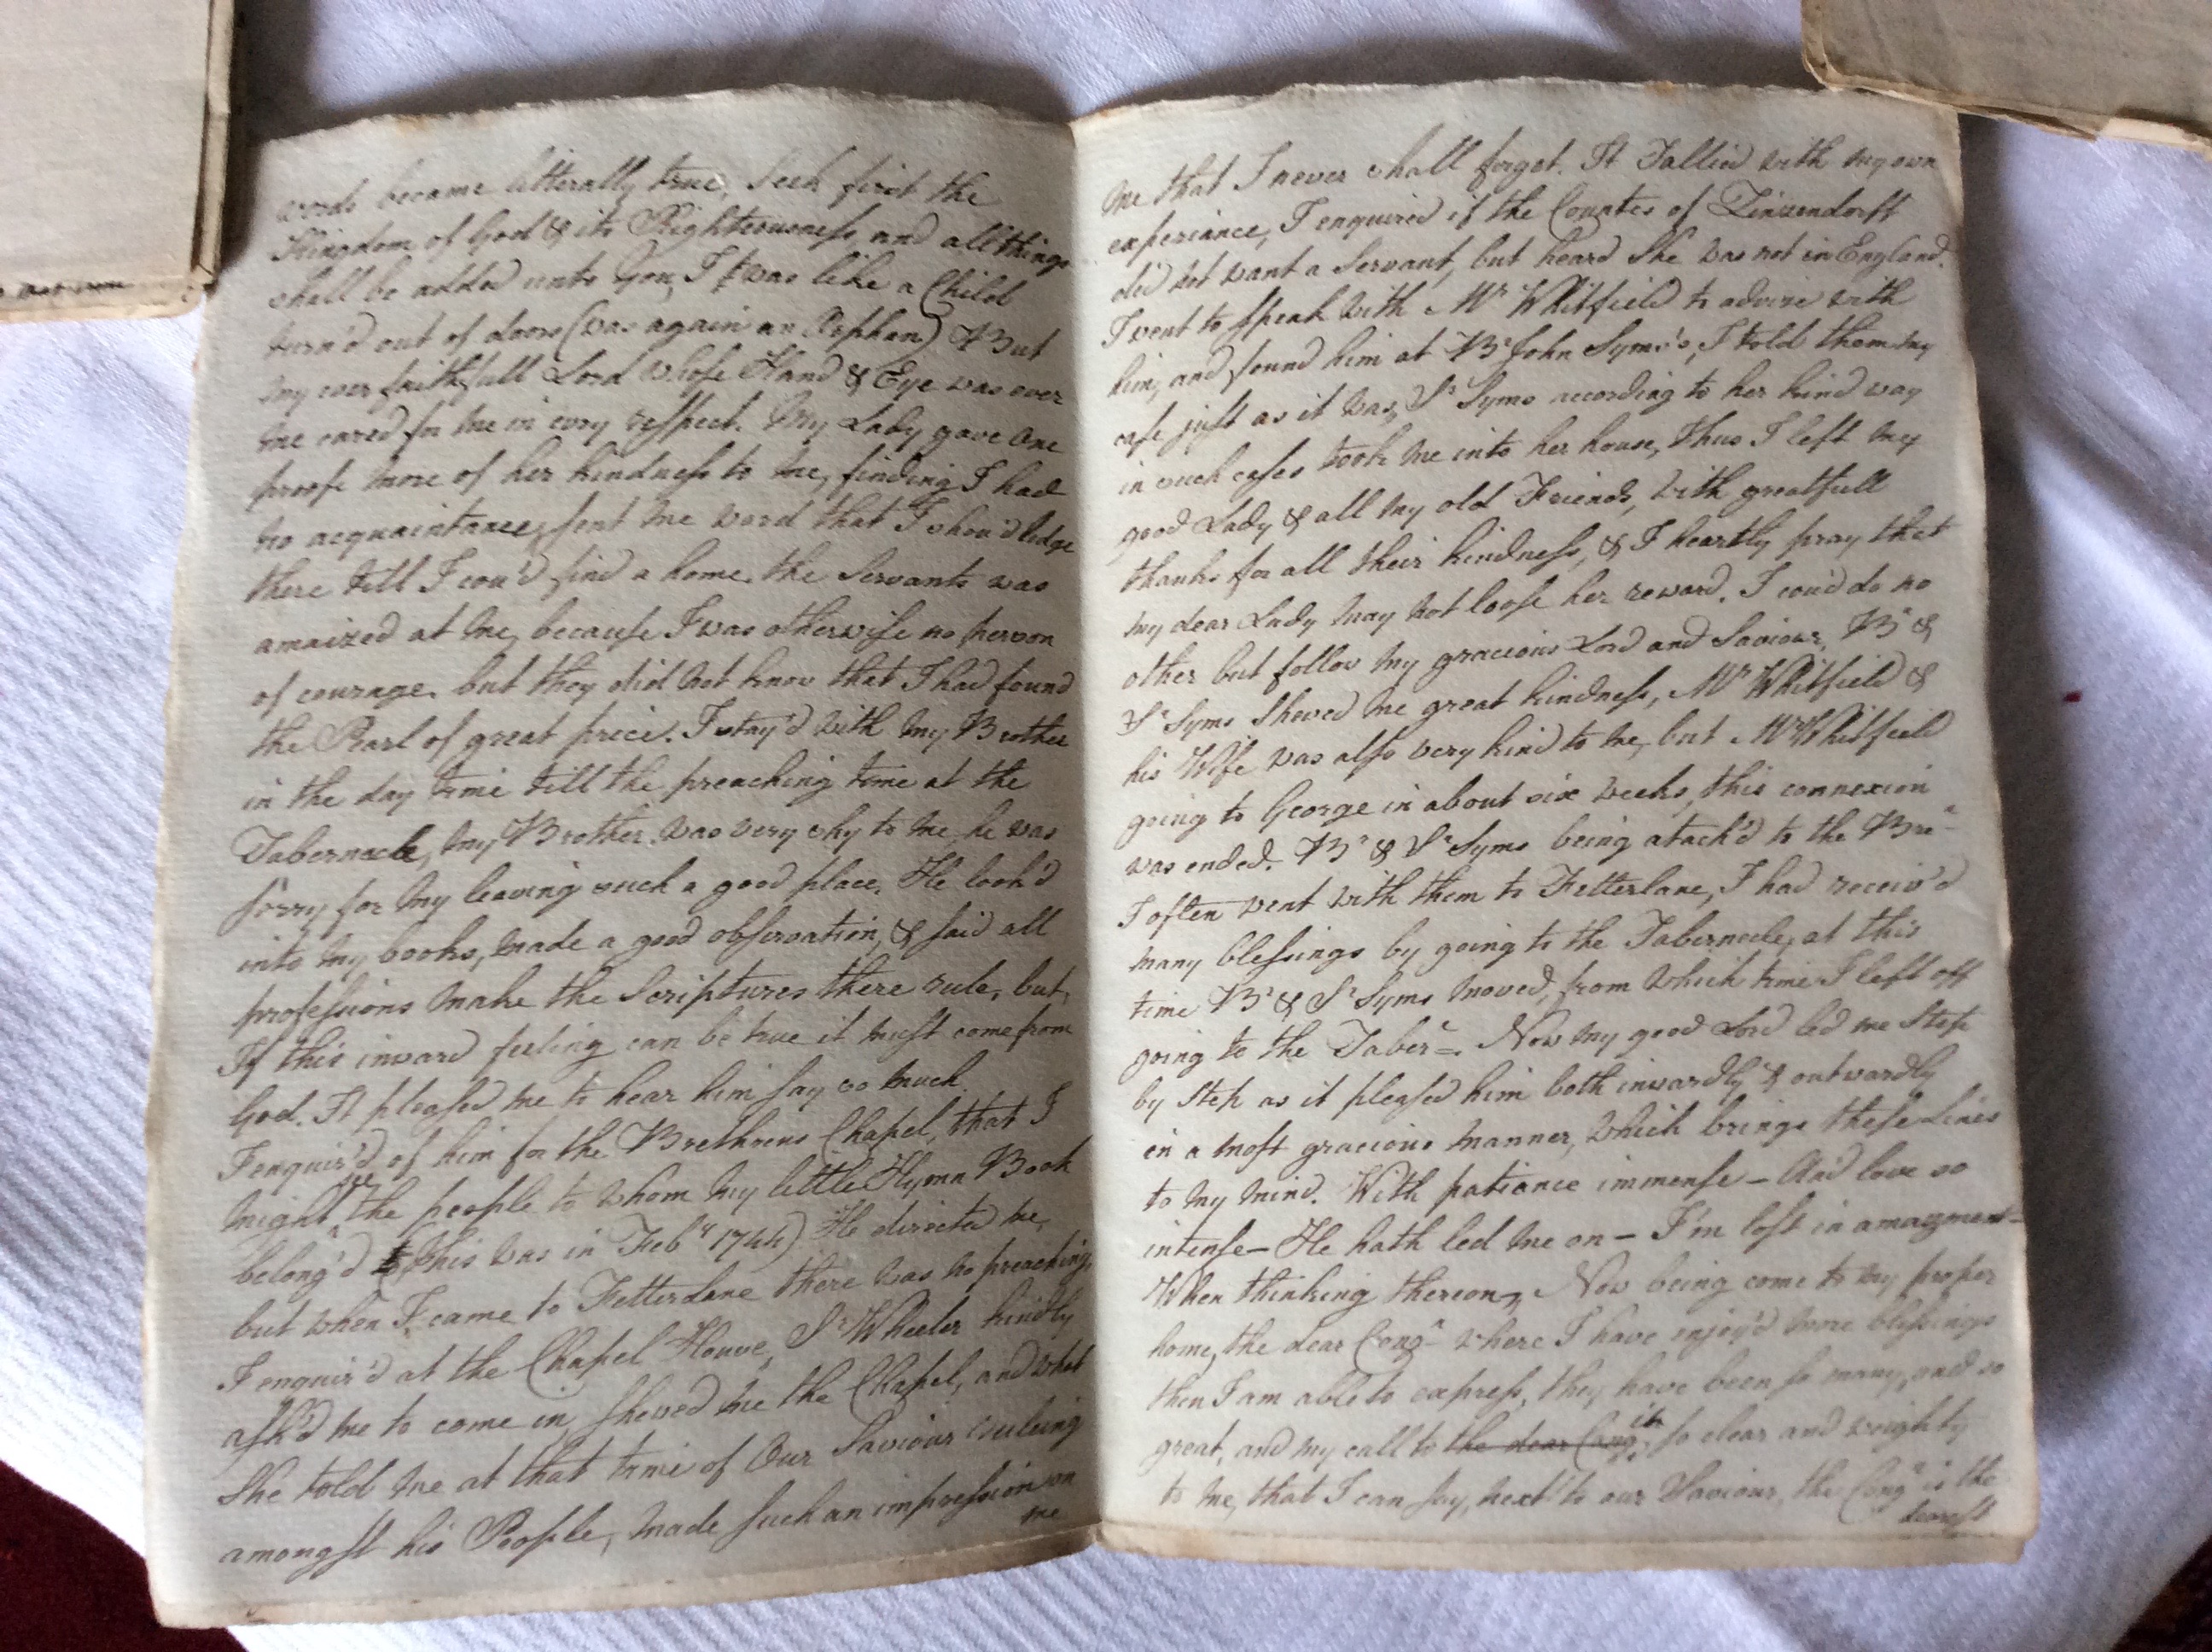 words became litterally true, Seek first the
Kingdom of God & its Righteousness and all things
shall be added unto You, I was like a Child
turn'd out of doors (was again an Orphan) But
my ever faithfull Lord whose Hand & Eye was over
me cared for me in evry respect. My Lady gave one
proofe more of her kindness to me, finding I had
no acquaintance, sent me word that I shou'd lodge
there till I cou'd find a home. the Servants was
amaized at me, because I was otherwise no person
of courage. but they did not know that I had found
the Pearl of great price. I stay'd with my Brother
in the day time till the preaching time at the
Tabernacle, my Brother was very shy to me, he was
sorry for my leaving such a good place. He look'd
into my books, made a good observation, & said all
professions make the Scriptures there rule, but,
If this inward feeling can be true it must come from
God. It pleased me to hear him say so much.
I enquir'd of him for the Brethrens Chapel, that I
might see the people to whom my little Hymn Book
belong'd (this was in Feb.ʸ 1744) He directed me,
but when I came to Fetterlane there was no preaching,
I enquir'd at the Chapel House, Sʳ Wheeler kindly
ask'd me to come in, shewed me the Chapel, and what
She told me at that time of Our Saviour ruleing
amongst his People, made such an impression on
me
me that I never shall forget. It Tallied with my own
experiance, I enquired if the Countes of Zinzendorff
did not want a Servant, but heard She was not in England.
I went to speak with Mʳ Whitfield to advise with
him, and found him at Bʳ John Syms's, I told them my
case just as it was, Sʳ Syms according to her kind way
in such cases took me into her house, thus I left my
good Lady & all my old Friends, with greatfull
thanks for all their kindness, & I heartly pray that
my dear Lady may not loose her reward. I cou'd do no
other but follow my gracious Lord and Saviour. Bʳ &
Sʳ Syms Shewed me great kindness, Mʳ Whitfield &
his Wife was also very kind to me, but Mʳ Whitfield
going to George in about six weeks, this connexion
was ended. Bʳ & Sʳ Syms being atach'd to the Breⁿ
I often went with them to Fetterlane, I had receiv'd
many blessings by going to the Tabernacle, at this
time Bʳ & Sʳ Syms moved, from which time I left off
going to the Taberⁿ. Now my good Lord led me Step
by Step as it pleased him both inwardly & outwardly
in a most gracious manner, which brings these Lines
to my mind. With patience immense – And love so
intense – He hath led me on – I'm lost in amazment –
When thinking thereon, Now being come to my proper
home, the dear Congⁿ where I have enjoy'd more blessings
then I am able to express, they have been so many, and so
great, and my call to the dear Cong it so clear and weighty
to me, that I can say, next to our Saviour, the Congⁿ is the
dearest